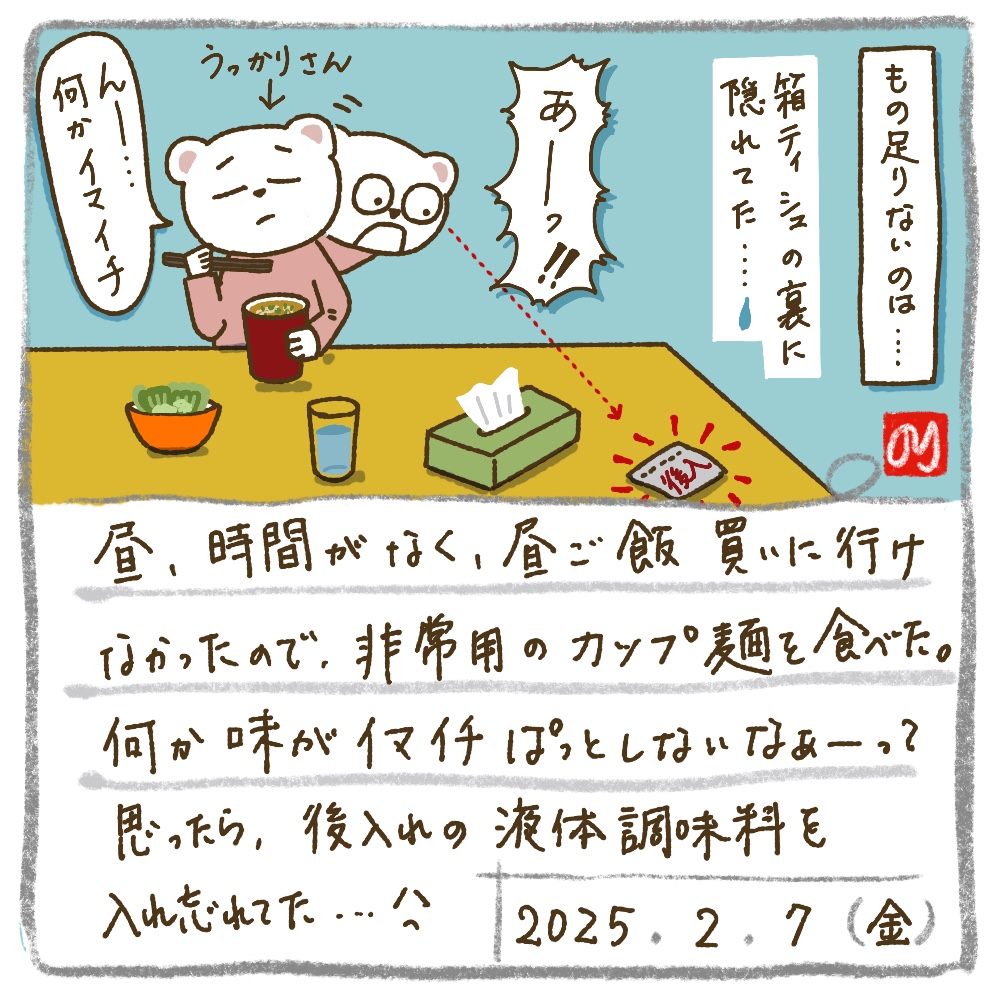 もの足りないのは‥‥
箱ティシュの裏に
隠れてた‥‥‥
あーーっ!!
うっかりさん
んー‥‥
何かイマイチ
後入
のり
昼、時間がなく、昼ご飯 買いに行け
なかったので、非常用のカップ麺を食べた。
何か味がイマイチぱっとしないなぁーって?
思ったら、後入れの液体調味料を
入れ忘れてた…
2025.2.7(金)